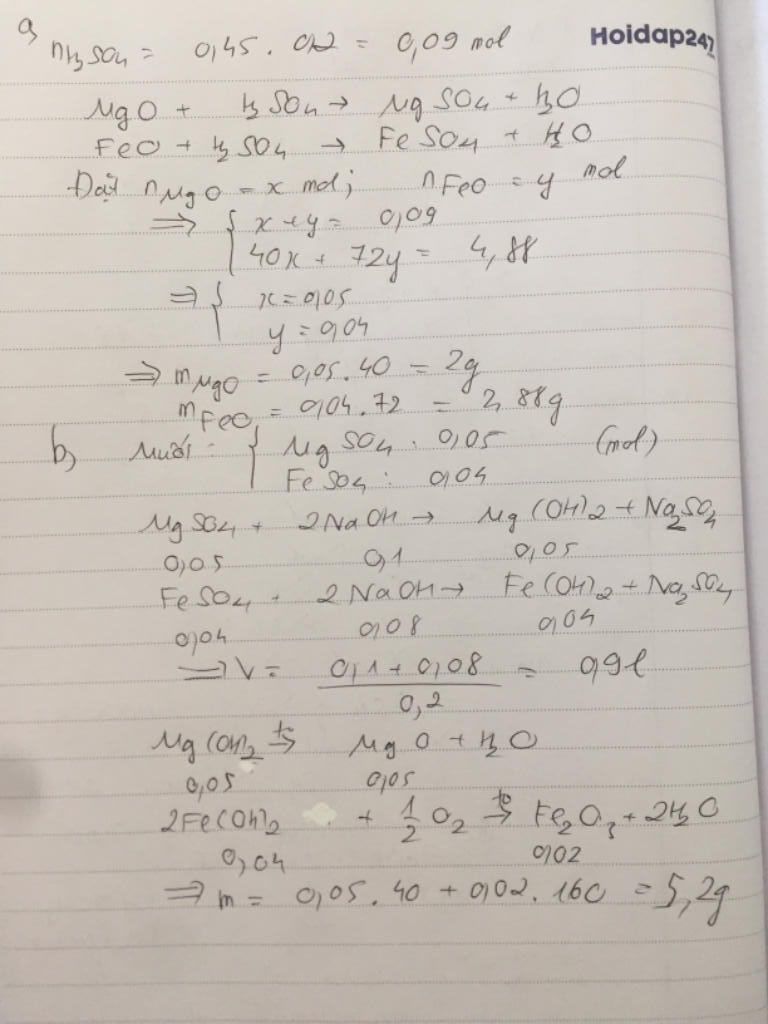 a,
nH2SO4 = 0,45 . 0,2 = 0,09 mol
Hoidap247
MgO + H2SO4 → MgSO4 + H2O
FeO + H2SO4 → FeSO4 + H2O
Đặt nMgO = x mol; nFeO = y mol
⇒ { x + y = 0,09
40x + 72y = 4,88
⇒ { x = 0,05
y = 0,04
⇒ mMgO = 0,05 . 40 = 2g
mFeO = 0,04 . 72 = 2,88g
b, Muối : { MgSO4 : 0,05 (mol)
FeSO4 : 0,04
MgSO4 + 2NaOH → Mg(OH)2 + Na2SO4
0,05 0,1 0,05
FeSO4 + 2NaOH → Fe(OH)2 + Na2SO4
0,04 0,08 0,04
⇒ V = (0,1 + 0,08) / 0,2 = 0,9l
Mg(OH)2 –to→ MgO + H2O
0,05 0,05
2Fe(OH)2 + 1/2 O2 –to→ Fe2O3 + 2H2O
0,04 0,02
⇒ m = 0,05 . 40 + 0,02 . 160 = 5,2g